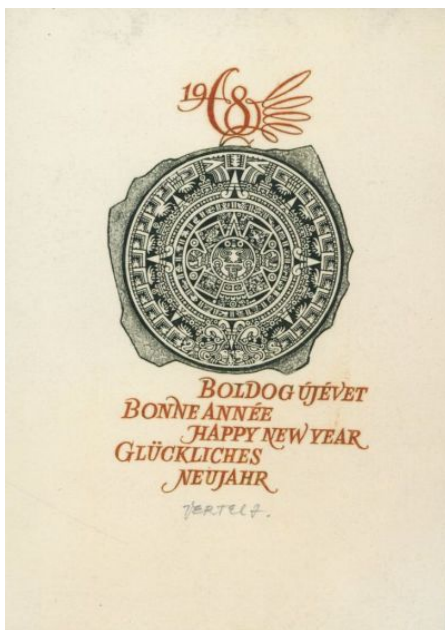 1968
BOLDOG ÚJÉVET
BONNE ANNÉE
HAPPY NEW YEAR
GLÜCKLICHES
NEUJAHR
VERTEL J.